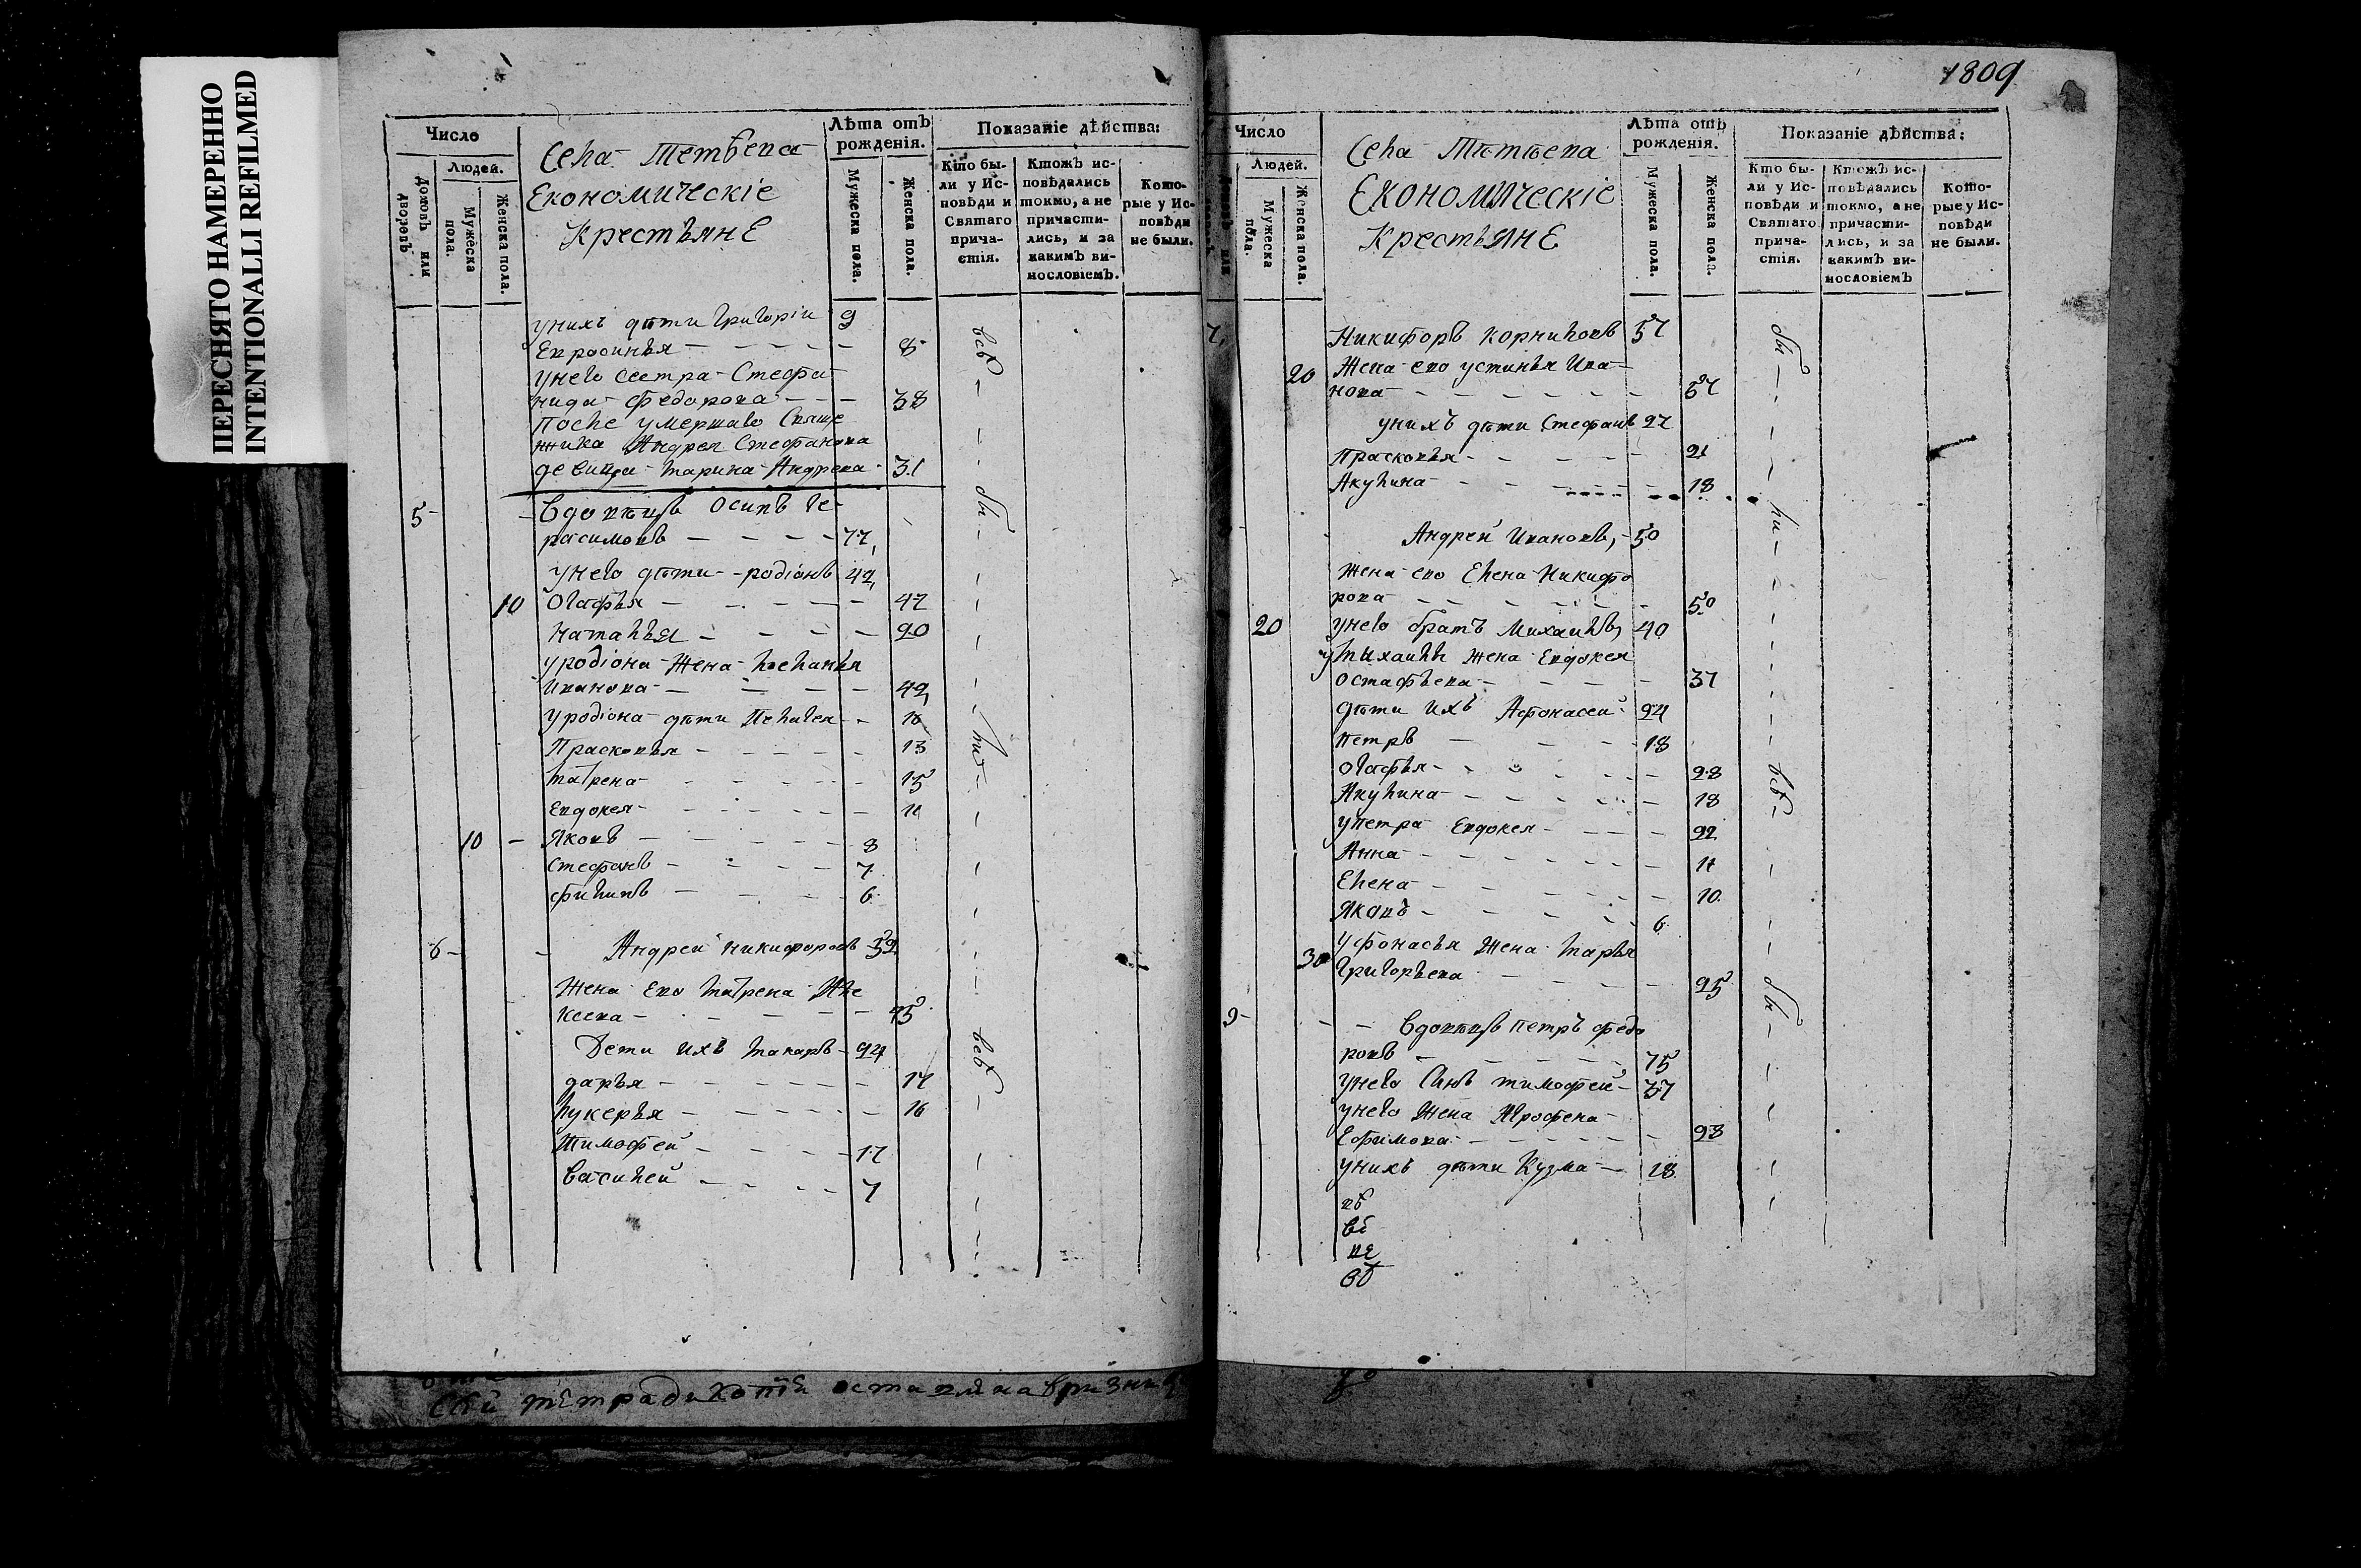 ПЕРЕСНЯТО НАМЕРЕННО
INTENTIONALLI REFILMED
Число
Людей.
домовъ или дворовъ
Мужеска пола.
Женска пола.
Села
Економическіе
Крестьяне
Лѣта отъ рожденія.
Мужеска пола.
Женска пола.
Показаніе дѣйства:
Кто бы-
ли у Ис-
повѣди и
Святаго
прича-
стія.
Ктожъ ис-
повѣдались
токмо, а не
причасти-
лись, и за
какимъ ви-
нословіемъ.
Кото-
рые у Ис-
повѣди
не были.
унихъ дѣти Григоріи 9
Евросинья 8
унево сестра Стефа
нида Федорова 38
После умершаво Свяще
нника Андрея Стефанова
девица Марина Андрева 31
5 Вдовецъ Осипъ Ге-
расимовъ 77
унево дѣти родіонъ 42
10 Огафья 47
Наталья 20
уродіона жена
Иванова 42
уродіона дѣти Пелагея 16
Прасковья 13
Матрена 15
Евдокея
10 Яковъ 8
Стефанъ 7
Филипъ 6
6 Андреи Никифоровъ 52
Жена ево Матрена Але
ксева 45
Дети ихъ Макаръ 24
дарья 17
Лукерья 16
Тимофеи 17
Василей 7
всѣ
бы
ли
всѣ
сей тетради
1809
Число
Людей.
Мужеска пола.
Женска пола.
Села
Економическіе
Крестьяне
Лѣта отъ рожденія.
Мужеска пола.
Женска пола.
Показаніе дѣйства:
Кто бы-
ли у Ис-
повѣди и
Святаго
прича-
стія.
Ктожъ ис-
повѣдались
токмо, а не
причасти-
лись, и за
какимъ ви-
нословіемъ
Кото-
рые у Ис-
повѣди
не были.
7 Никифоръ Корниловъ 57
20 Жена ево устинья Ива-
нова 57
унихъ дѣти Стефанъ 27
Прасковья 21
Акулина 18
Андрей Ивановъ 50
жена ево Елена Никифо
рова 50
20 унево братъ Михаилъ 40
умихаилы жена Евдокея
Остафьева 37
дѣти ихъ Афонасеи 24
Петръ 18
Огафья 28
Акулина 18
упетра Евдокея 22
Анна 11
Елена 10
Яковъ 6
30 уфонасья жена Марья
Григорьева 25
9 Вдовецъ Петръ Федо
ровъ 75
унево Синъ тимофеи 37
унево жена Агрофена
Ефимова 28
унихъ дѣти Кузма 18
бы
ли
всѣ
бы